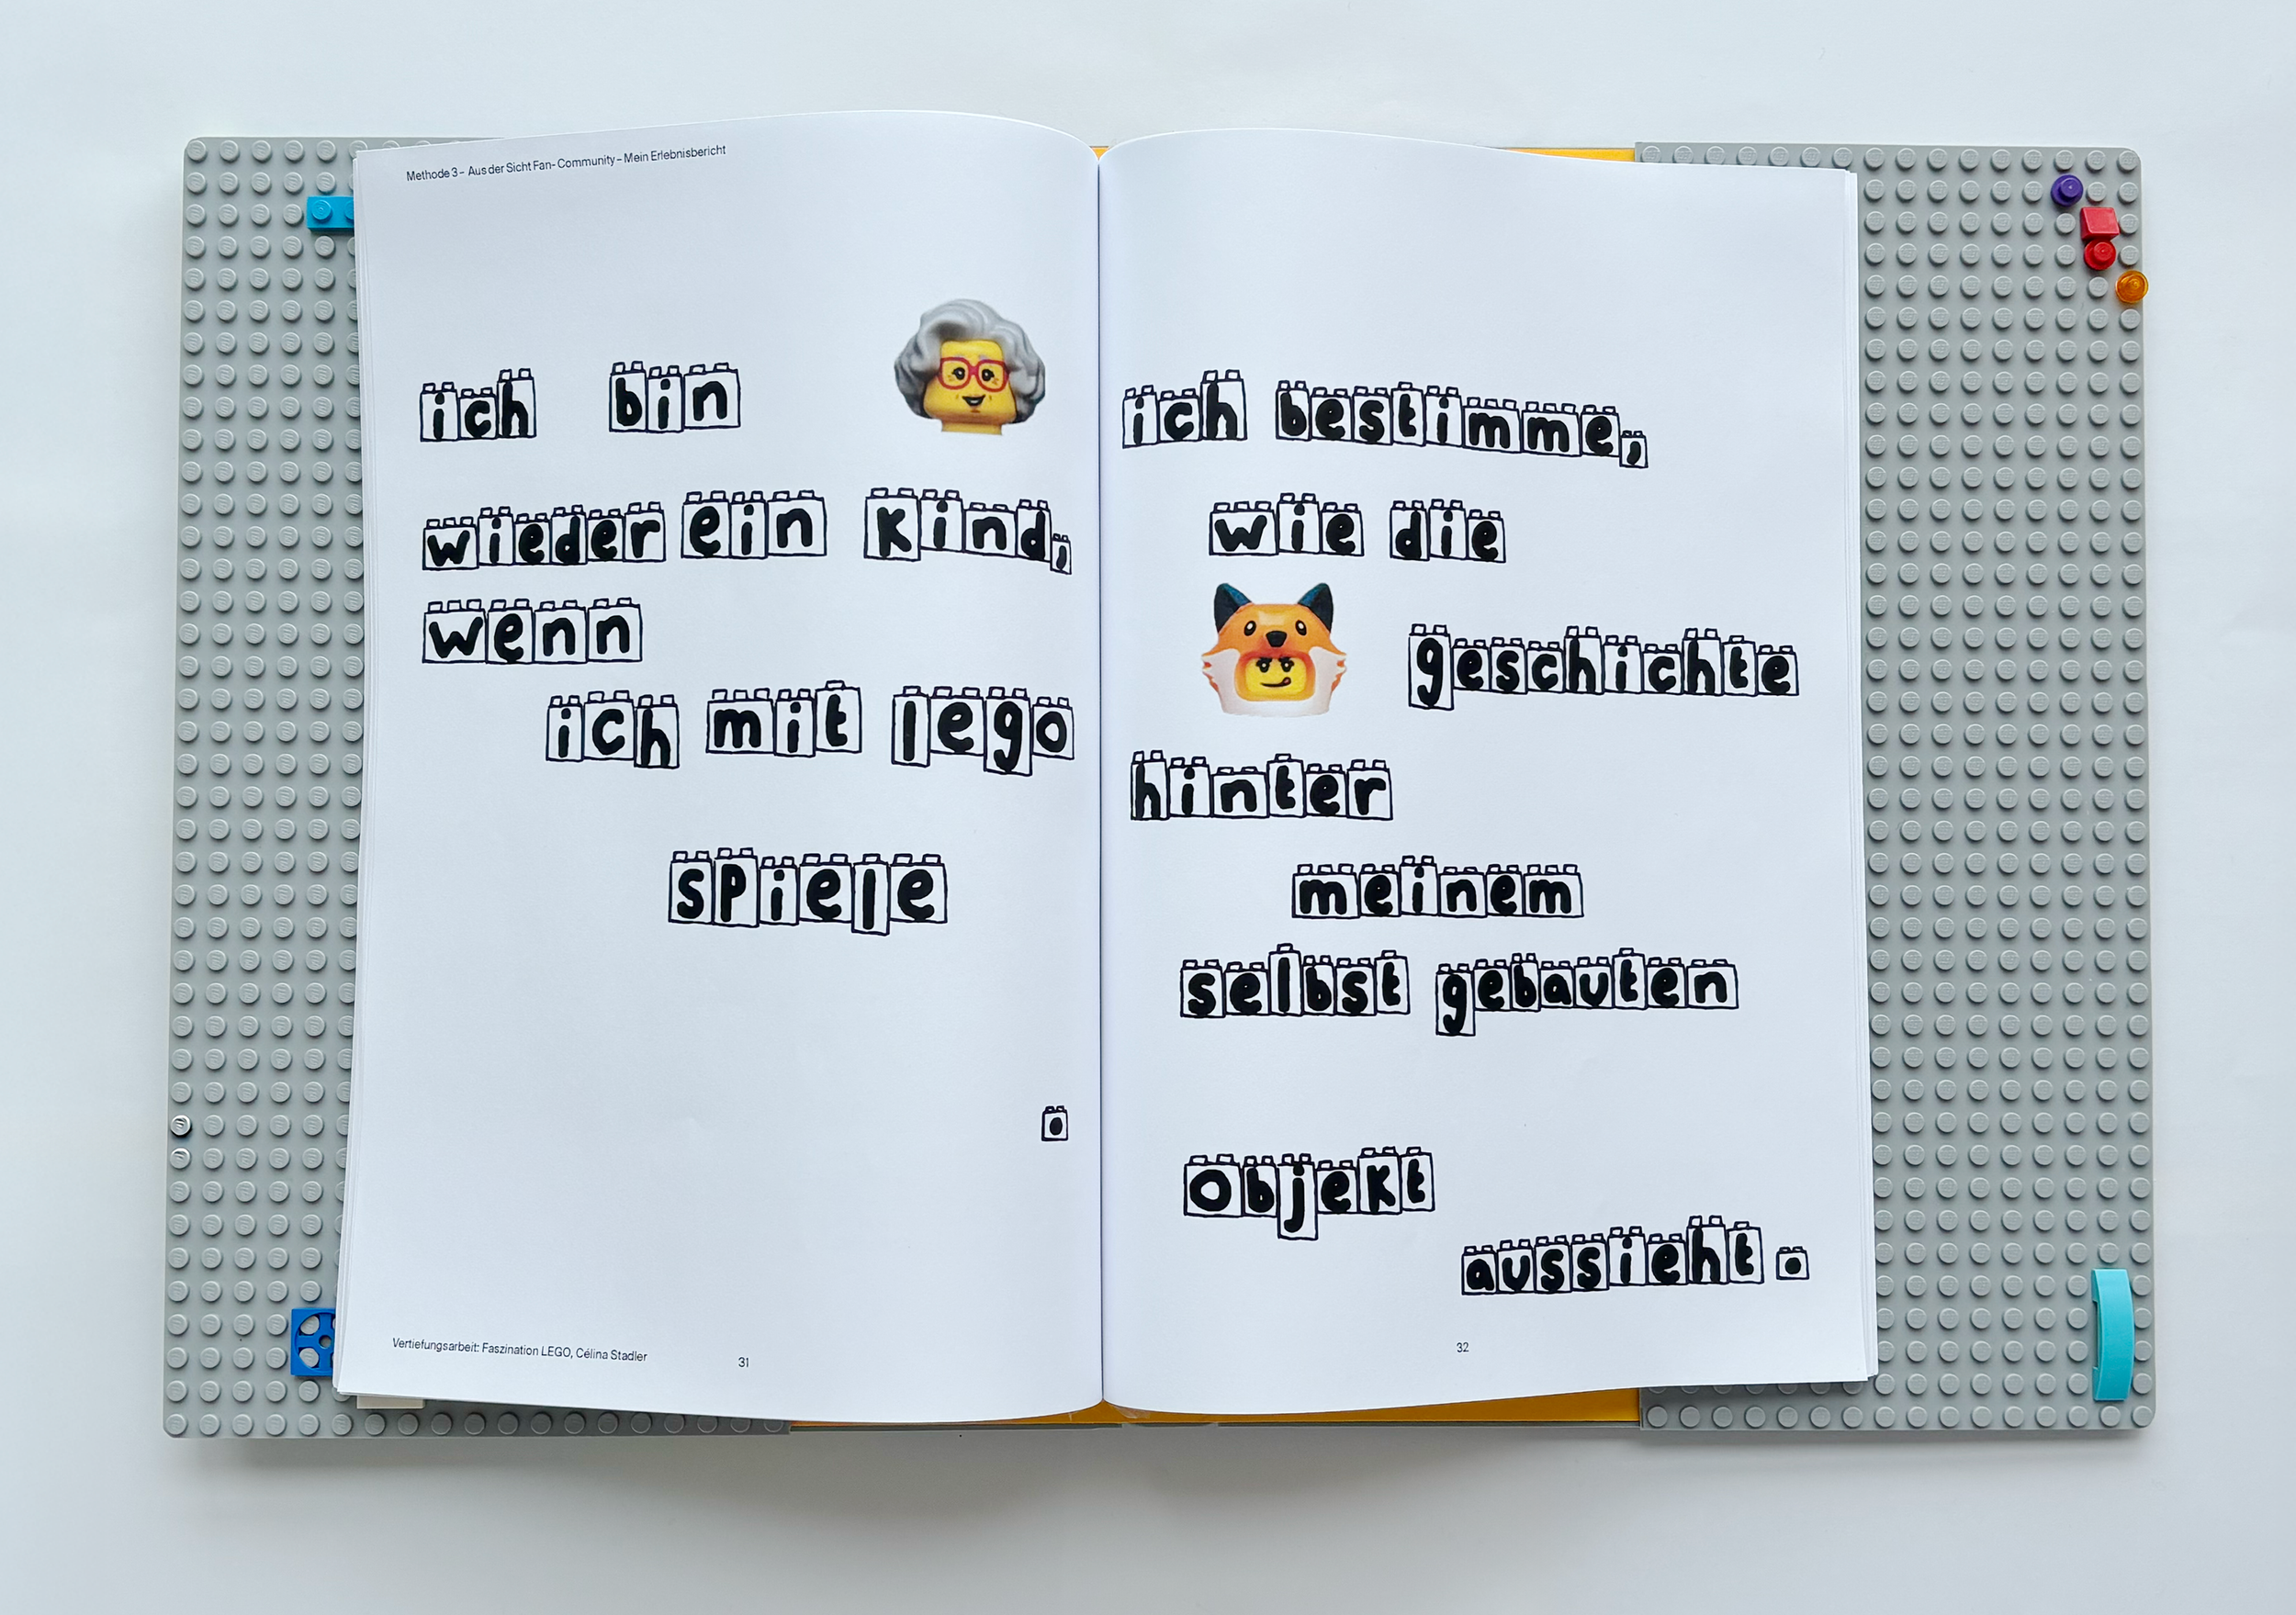 Methode 3 – Aus der Sicht Fan- Community – Mein Erlebnisbericht
ich bin
wieder ein kind,
wenn
ich mit lego
spiele
.
Vertiefungsarbeit: Faszination LEGO, Célina Stadler
31
ich bestimme,
wie die
geschichte
hinter
meinem
selbst gebauten
objekt
aussieht.
32